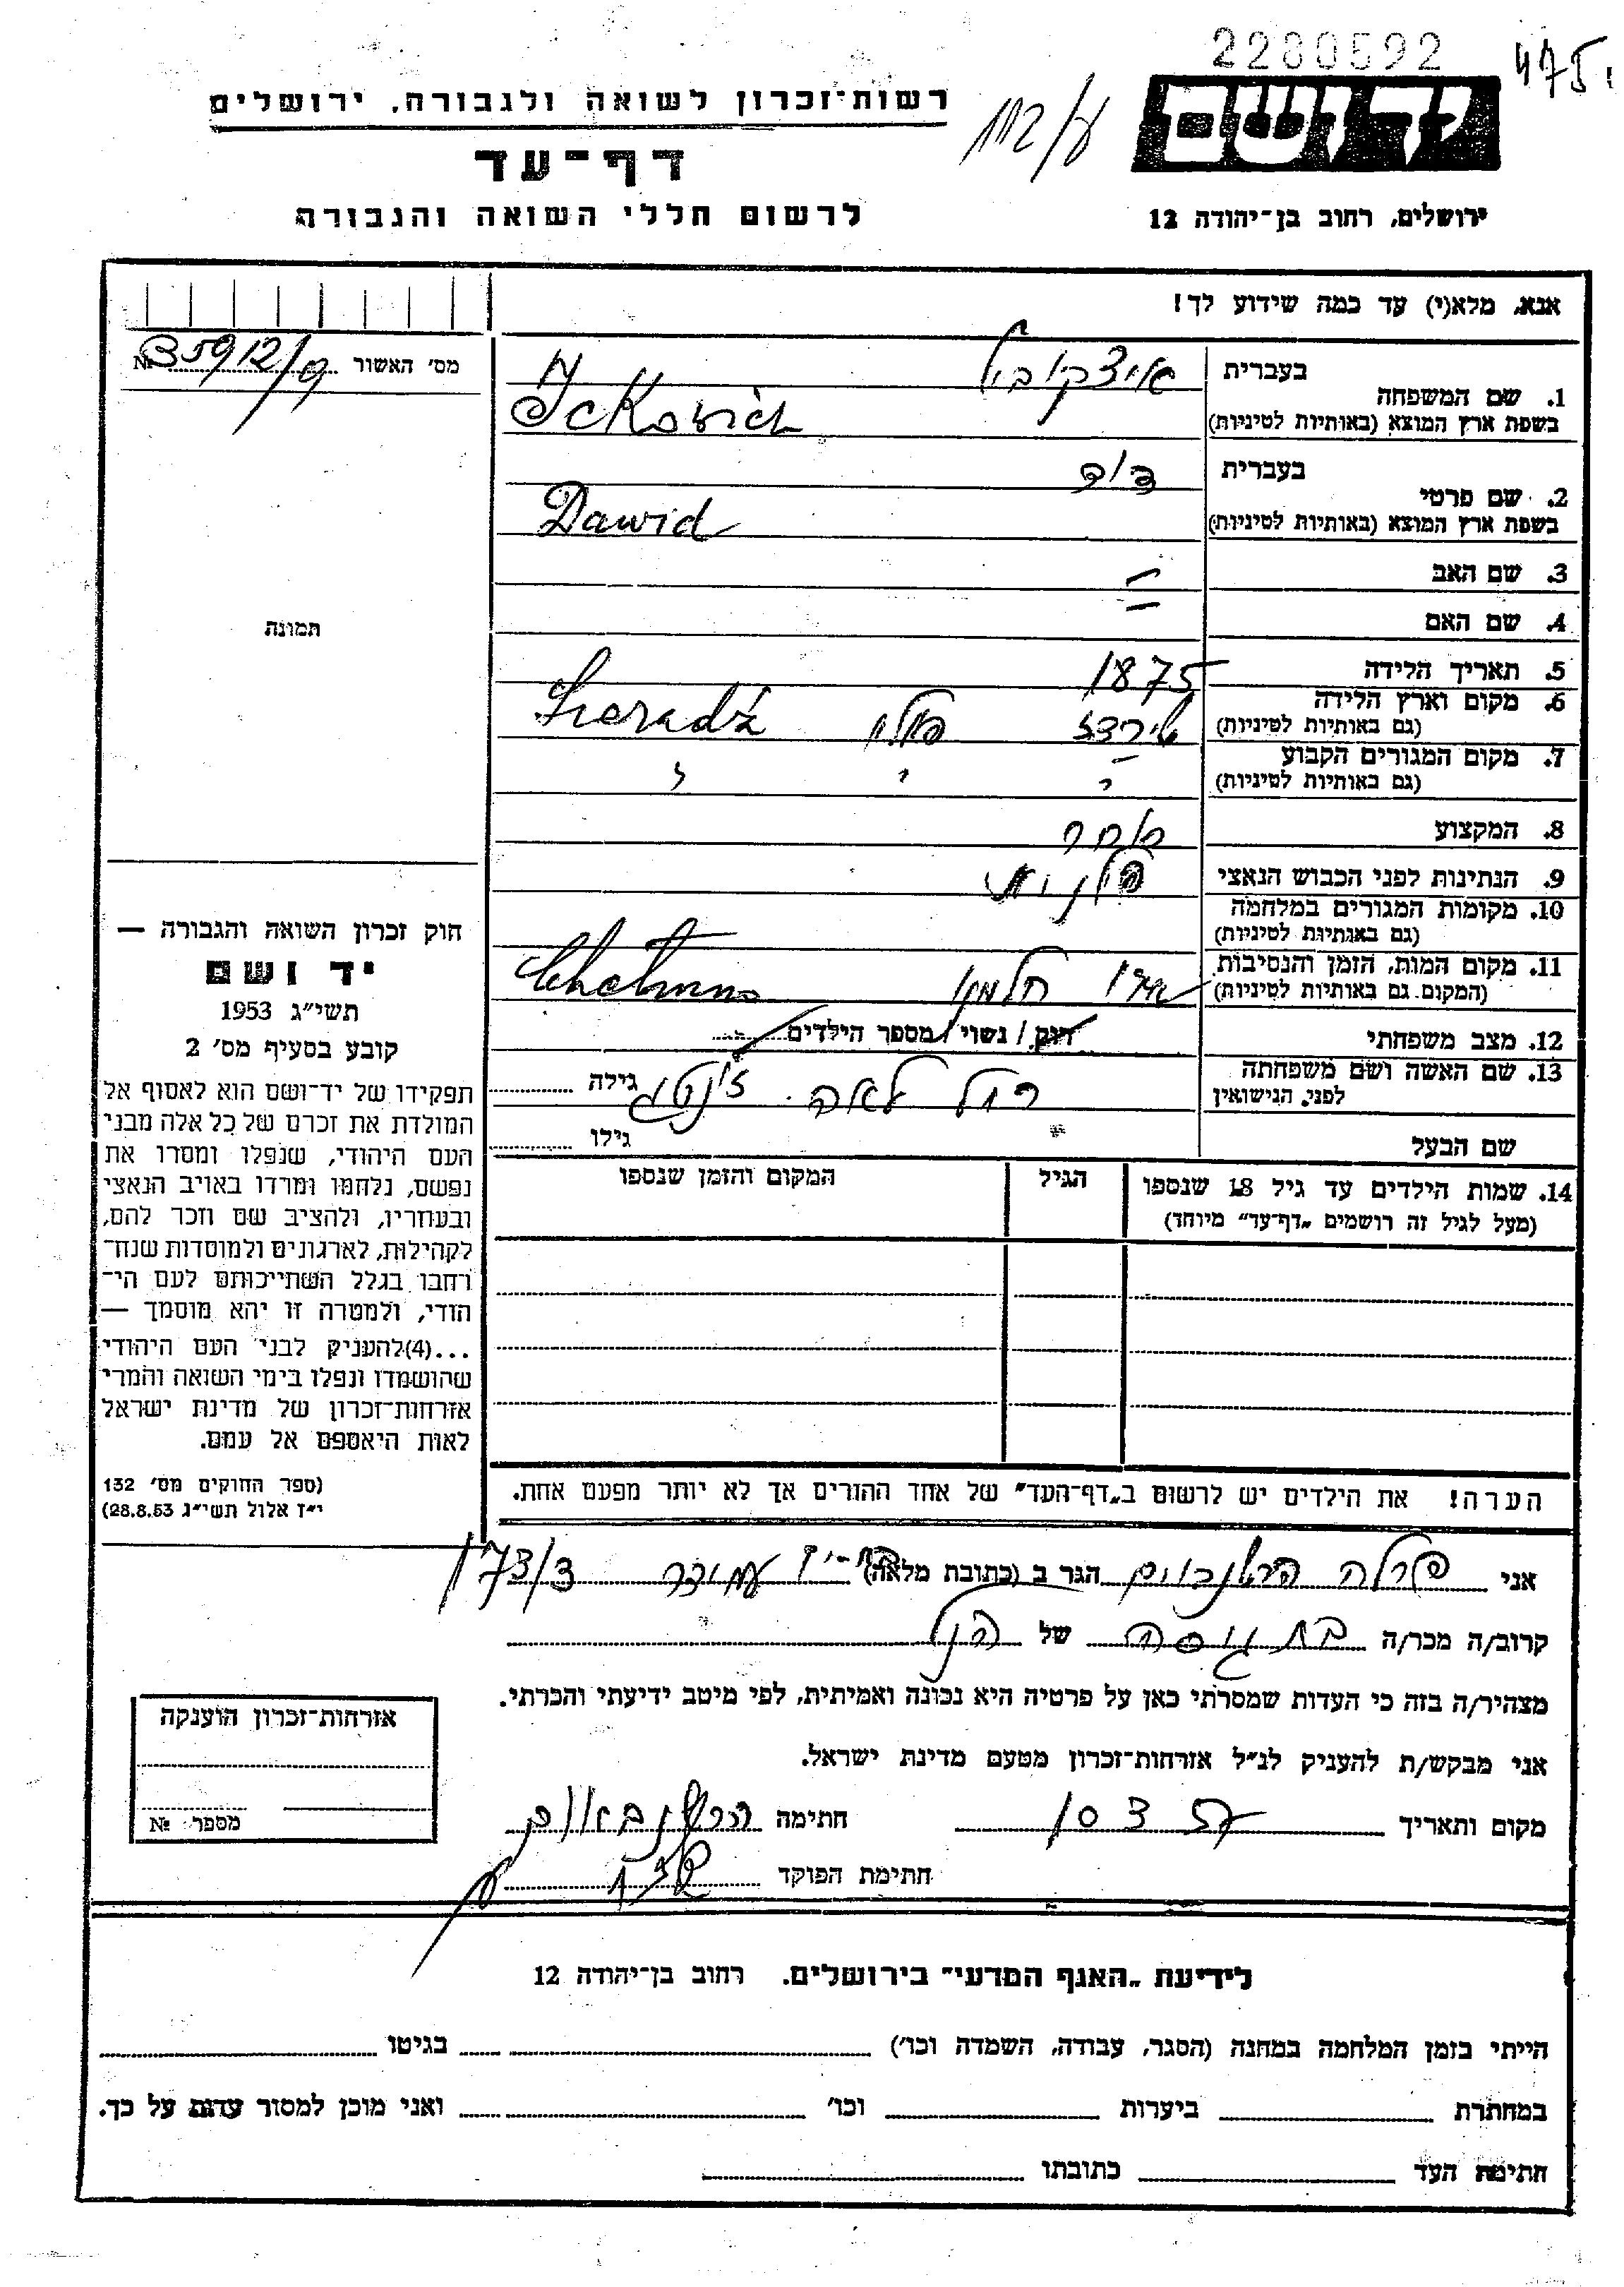 2280592
475
יד ושם
רשות-זכרון לשואה ולגבורה, ירושלים
דף-עד
לרשום חללי השואה והגבורה
ירושלים, רחוב בן-יהודה 12
אנא, מלא(י) עד כמה שידוע לך!
מס' האשור №
בעברית איצקוביץ
1. שם המשפחה
בשפת ארץ המוצא (באותיות לטיניות) Ickovich
בעברית דוד
2. שם פרטי
בשפת ארץ המוצא (באותיות לטיניות) Dawid
3. שם האב –
4. שם האם –
תמונה
5. תאריך הלידה 1875
6. מקום וארץ הלידה
(גם באותיות לטיניות) שירדז פולין Sieradź
7. מקום המגורים הקבוע
(גם באותיות לטיניות) " " "
8. המקצוע סוחר
9. הנתינות לפני הכבוש הנאצי פולנית
10. מקומות המגורים במלחמה
(גם באותיות לטיניות)
11. מקום המות, הזמן והנסיבות
(המקום גם באותיות לטיניות) חלמנו Chelmno
12. מצב משפחתי רווק / נשוי / מספר הילדים
13. שם האשה ושם משפחתה
לפני הנישואין לאה גילה
שם הבעל גילו
14. שמות הילדים עד גיל 18 שנספו הגיל המקום והזמן שנספו
(מעל לגיל זה רושמים „דף-עד" מיוחד)
הערה! את הילדים יש לרשום ב„דף-העד" של אחד ההורים אך לא יותר מפעם אחת.
חוק זכרון השואה והגבורה —
יד ושם
תשי"ג 1953
קובע בסעיף מס' 2
תפקידו של יד-ושם הוא לאסוף אל
המולדת את זכרם של כל אלה מבני
העם היהודי, שנפלו ומסרו את
נפשם, נלחמו ומרדו באויב הנאצי
ובעוזריו, ולהציב שם וזכר להם,
לקהילות, לארגונים ולמוסדות שנח-
רחבו בגלל השתייכותם לעם הי-
הודי, ולמטרה זו יהא מוסמך —
...(4)להעניק לבני העם היהודי
שהושמדו ונפלו בימי השואה והמרי
אזרחות-זכרון של מדינת ישראל
לאות היאספם אל עמם.
(ספר החוקים מס' 132
י"ז אלול תשי"ג 28.8.53)
אני פרלה הגר ב (כתובת מלאה) עמידר 173/3
קרוב/ה מכר/ה בת גיסה של הנ"ל
מצהיר/ה בזה כי העדות שמסרתי כאן על פרטיה היא נכונה ואמיתית, לפי מיטב ידיעתי והכרתי.
אני מבקש/ת להעניק לנ"ל אזרחות-זכרון מטעם מדינת ישראל.
מקום ותאריך 10 3 57 חתימה
חתימת הפוקד
אזרחות-זכרון הוענקה
מספר №
לידיעת „האגף המדעי" בירושלים. רחוב בן-יהודה 12
הייתי בזמן המלחמה במחנה (הסגר, עבודה, השמדה וכו') בגיטו
במחתרת ביערות וכו' ואני מוכן למסור עדות על כך.
חתימת העד כתובתו